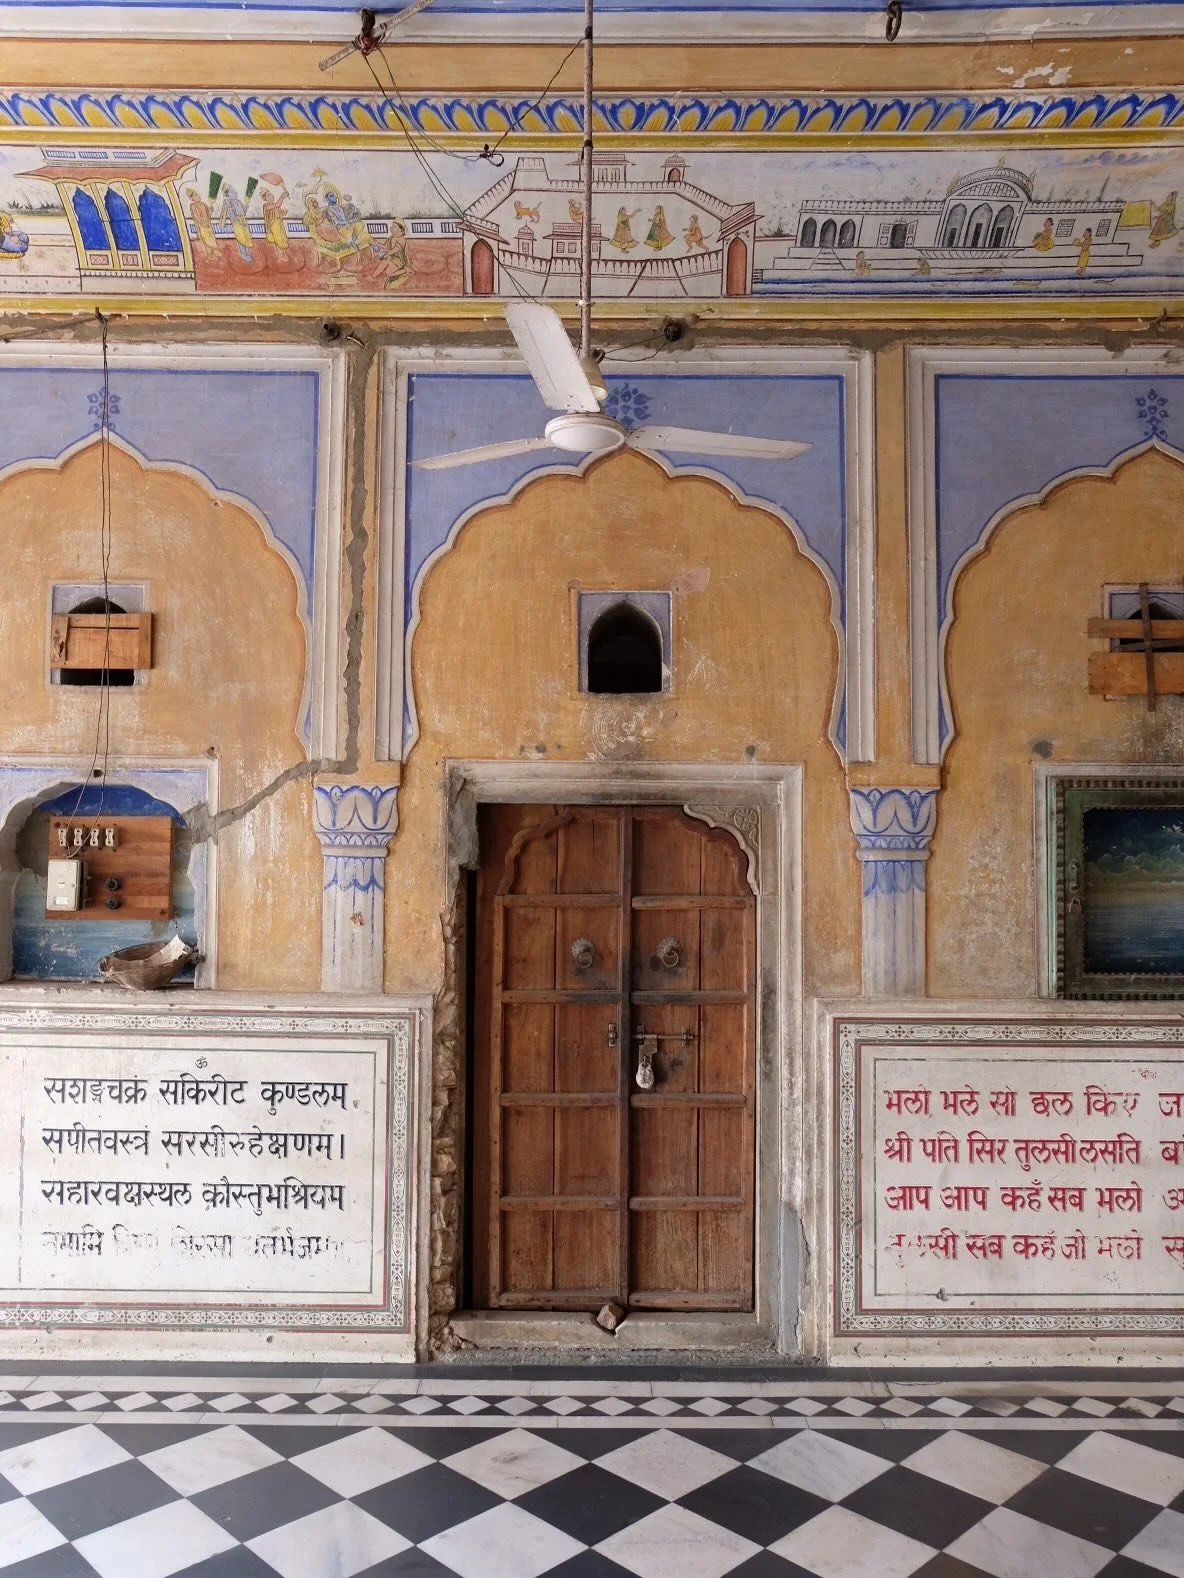 ॐ
सशङ्खचक्रं सकिरीट कुण्डलम्
सपीतवस्त्रं सरसीरुहेक्षणम्।
सहारवक्षस्थल कौस्तुभश्रियम
नमामि
भलो भले सो छल किए
श्री पति सिर तुलसी लसति
आप आप कहँ सब भलो
सी सब कहँ जो भलो